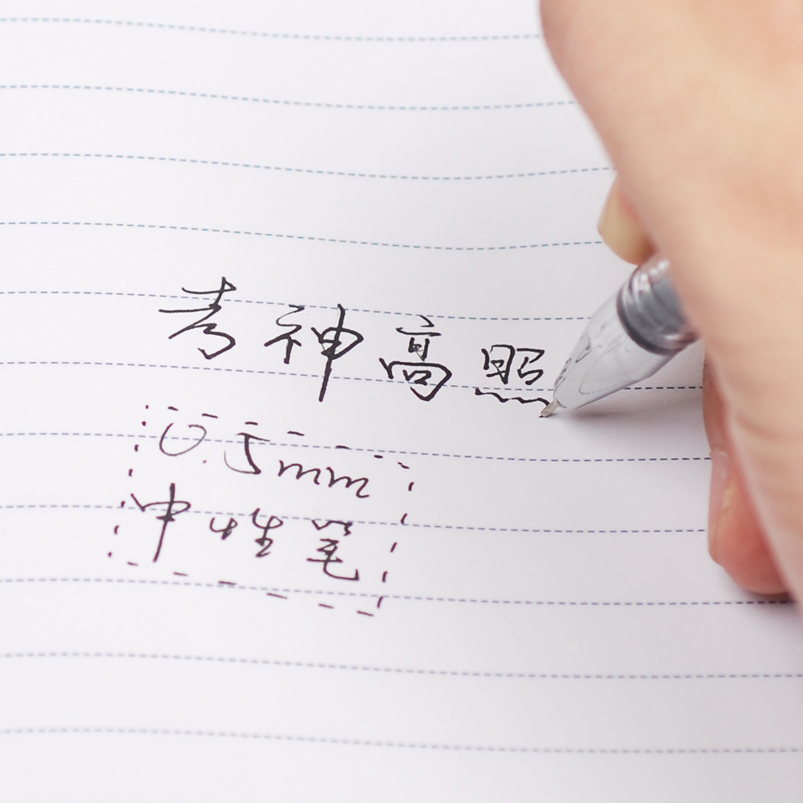 考神高照
0.5mm
中性笔